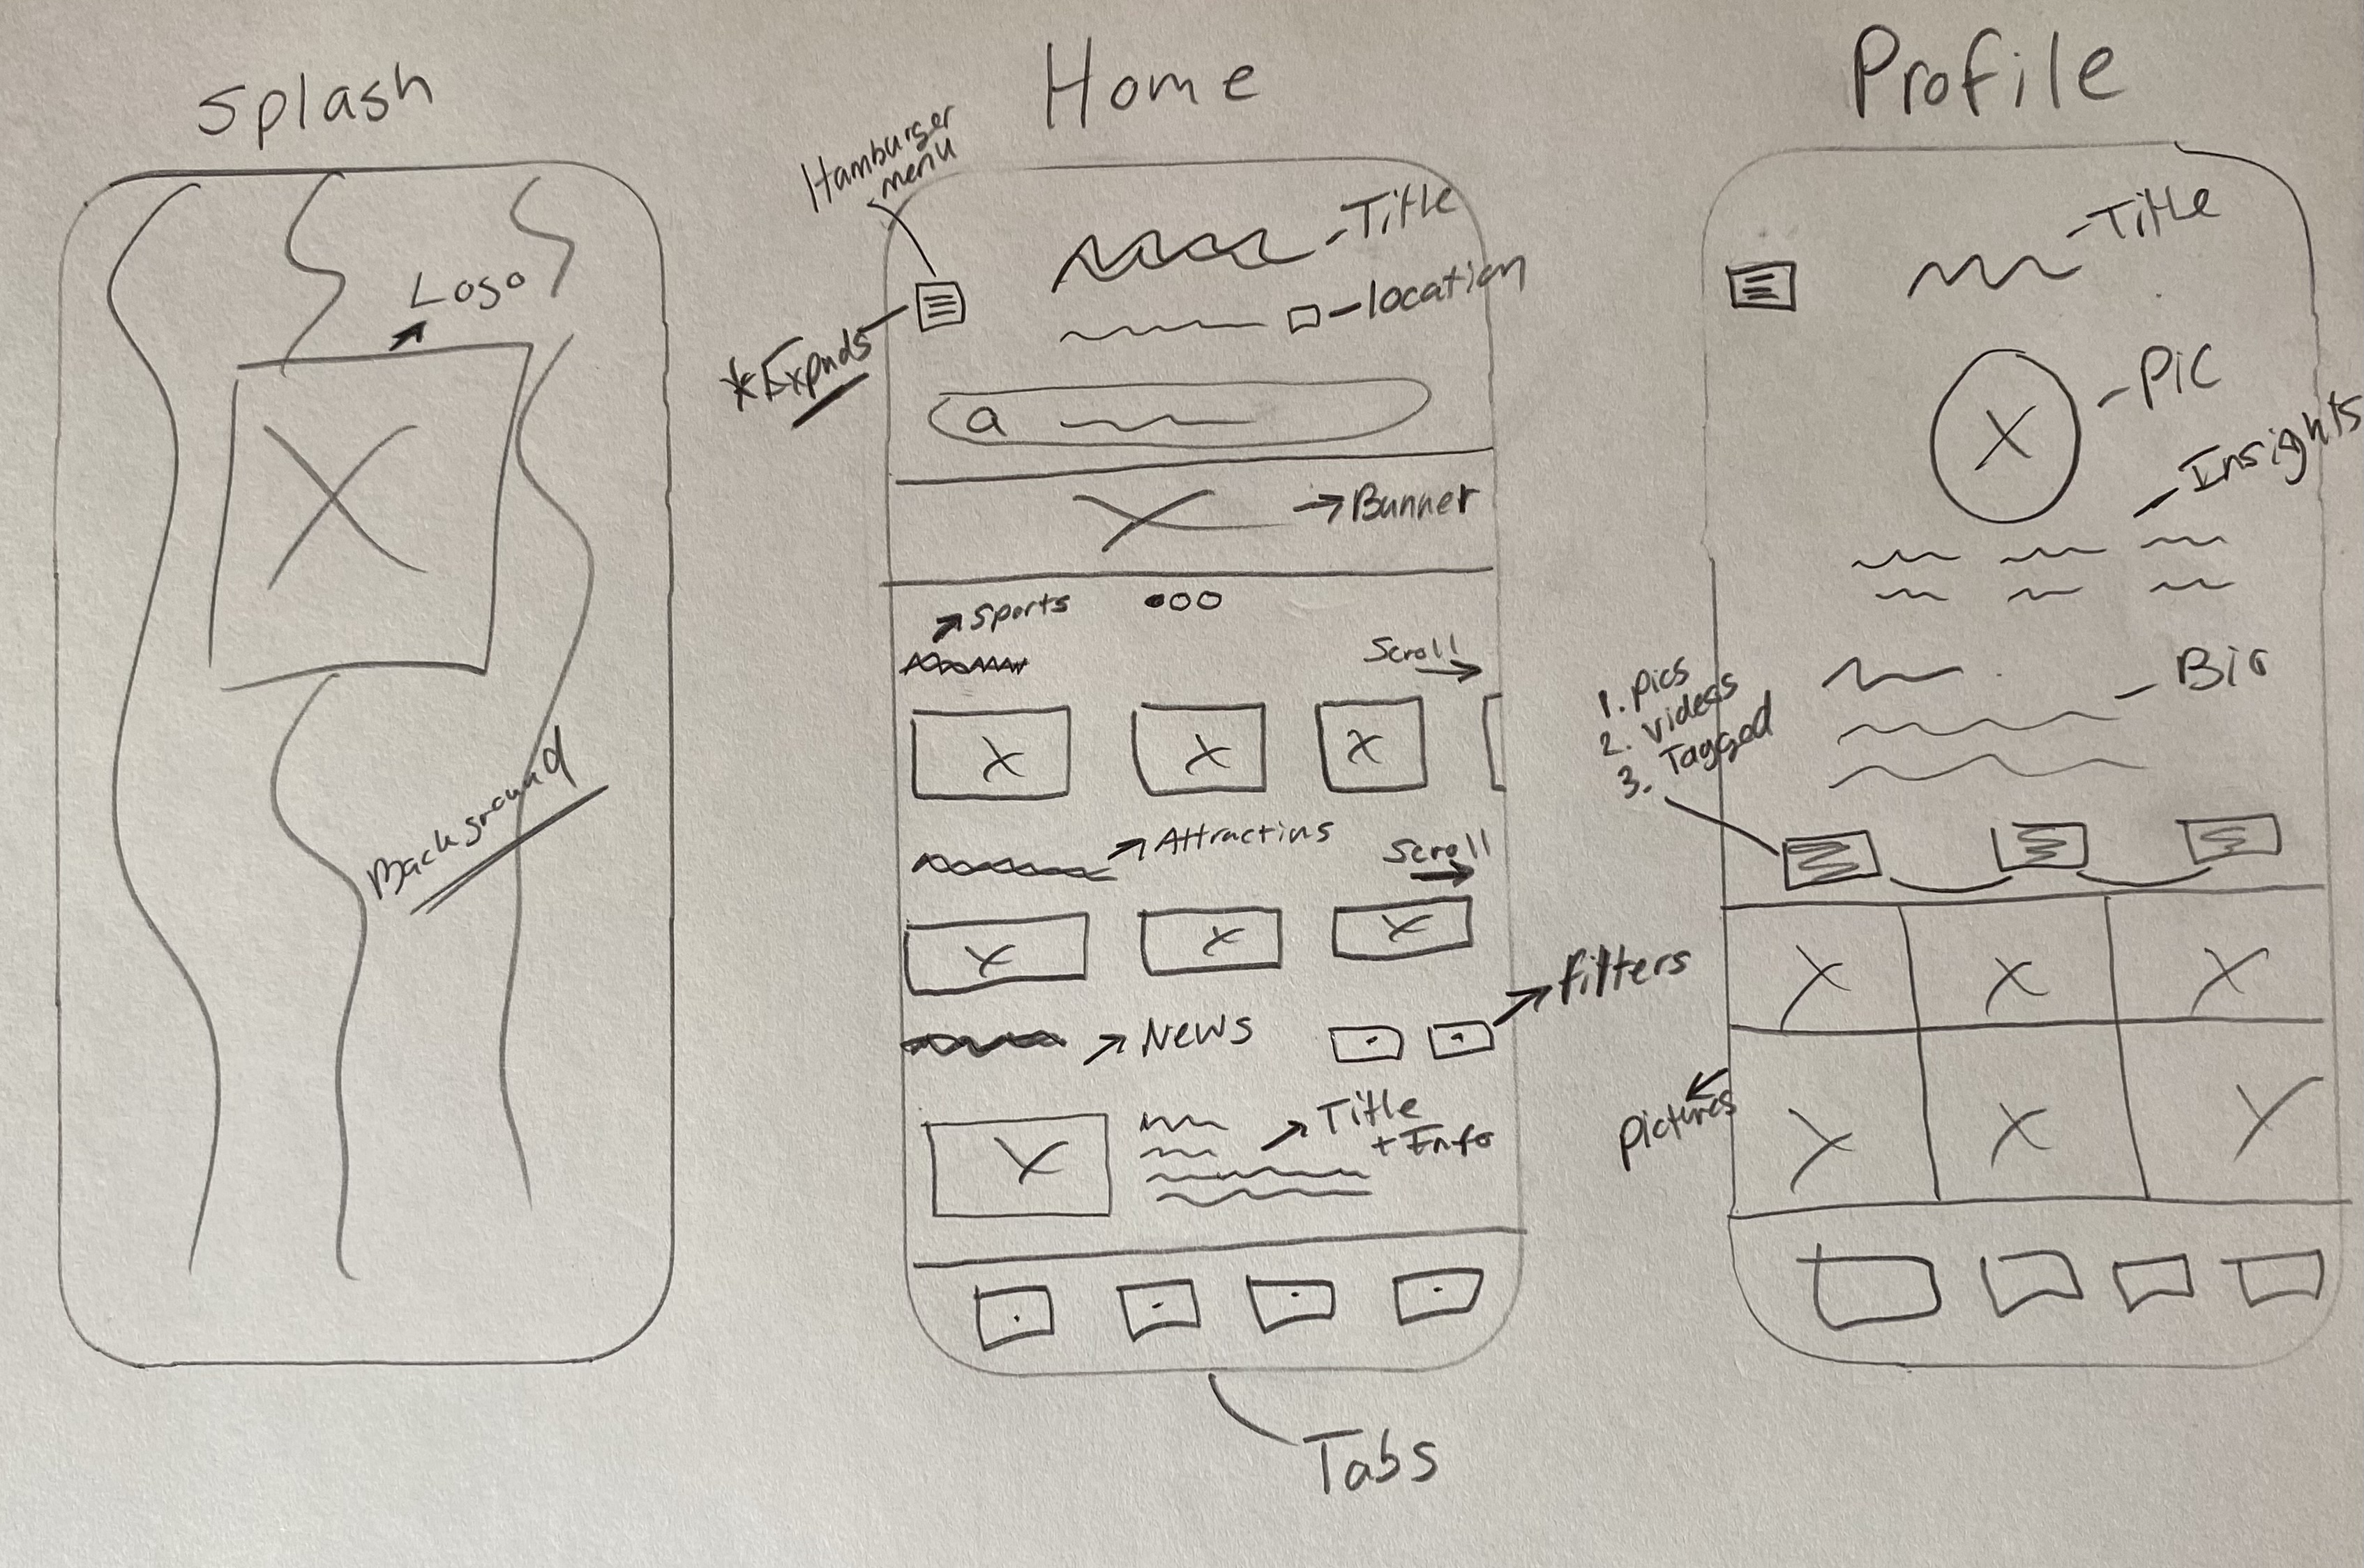 Splash
Logo
Background
Home
Hamburger
menu
-Title
-location
*Expnds
a
Banner
Sports
Scroll
Attractins
Scroll
News
filters
Title
+ Info
Tabs
Profile
-Title
-Pic
-Insights
-Bio
1. pics
2. videos
3. Tagged
pictures